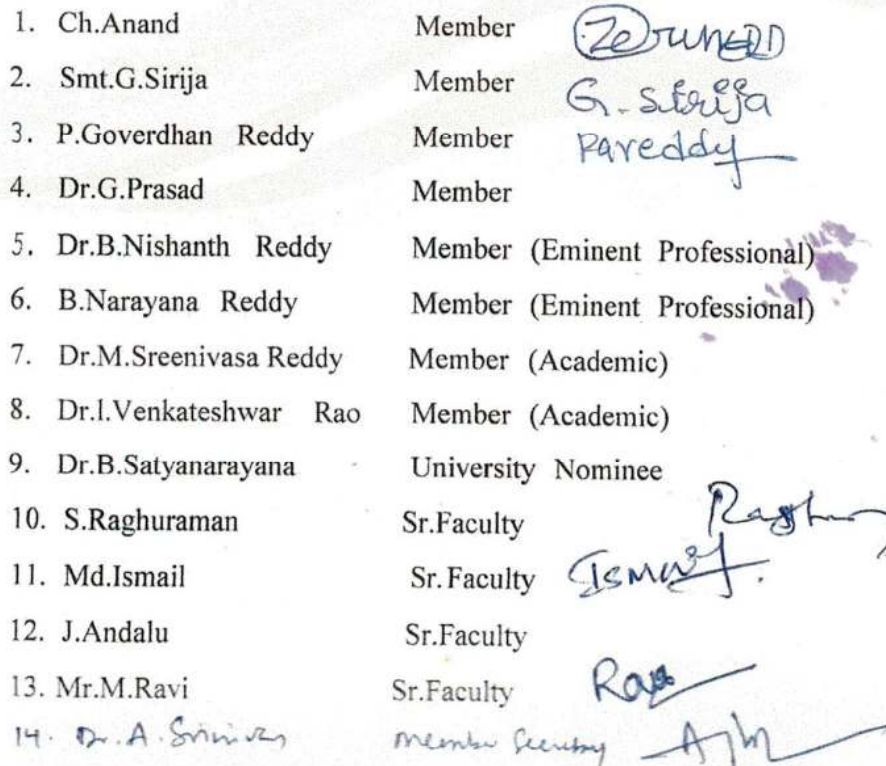 1. Ch.Anand Member
2. Smt.G.Sirija Member G. Sirija
3. P.Goverdhan Reddy Member Pareddy
4. Dr.G.Prasad Member
5. Dr.B.Nishanth Reddy Member (Eminent Professional)
6. B.Narayana Reddy Member (Eminent Professional)
7. Dr.M.Sreenivasa Reddy Member (Academic)
8. Dr.I.Venkateshwar Rao Member (Academic)
9. Dr.B.Satyanarayana University Nominee
10. S.Raghuraman Sr.Faculty
11. Md.Ismail Sr.Faculty
12. J.Andalu Sr.Faculty
13. Mr.M.Ravi Sr.Faculty
14. Dr. A. Srinivas member Secretary